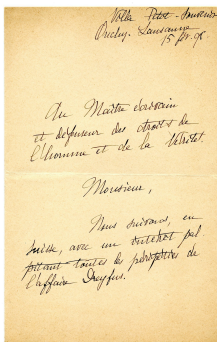 Villa Petit-Souvenir
Ouchy. Lausanne
15 fév. 98
Au Maître écrivain
et défenseur des droits de
l'homme et de la Vérité.
Monsieur,
Nous suivons, en
Suisse, avec un intérêt pal
pitant toutes les péripéties de
l'affaire Dreyfus.